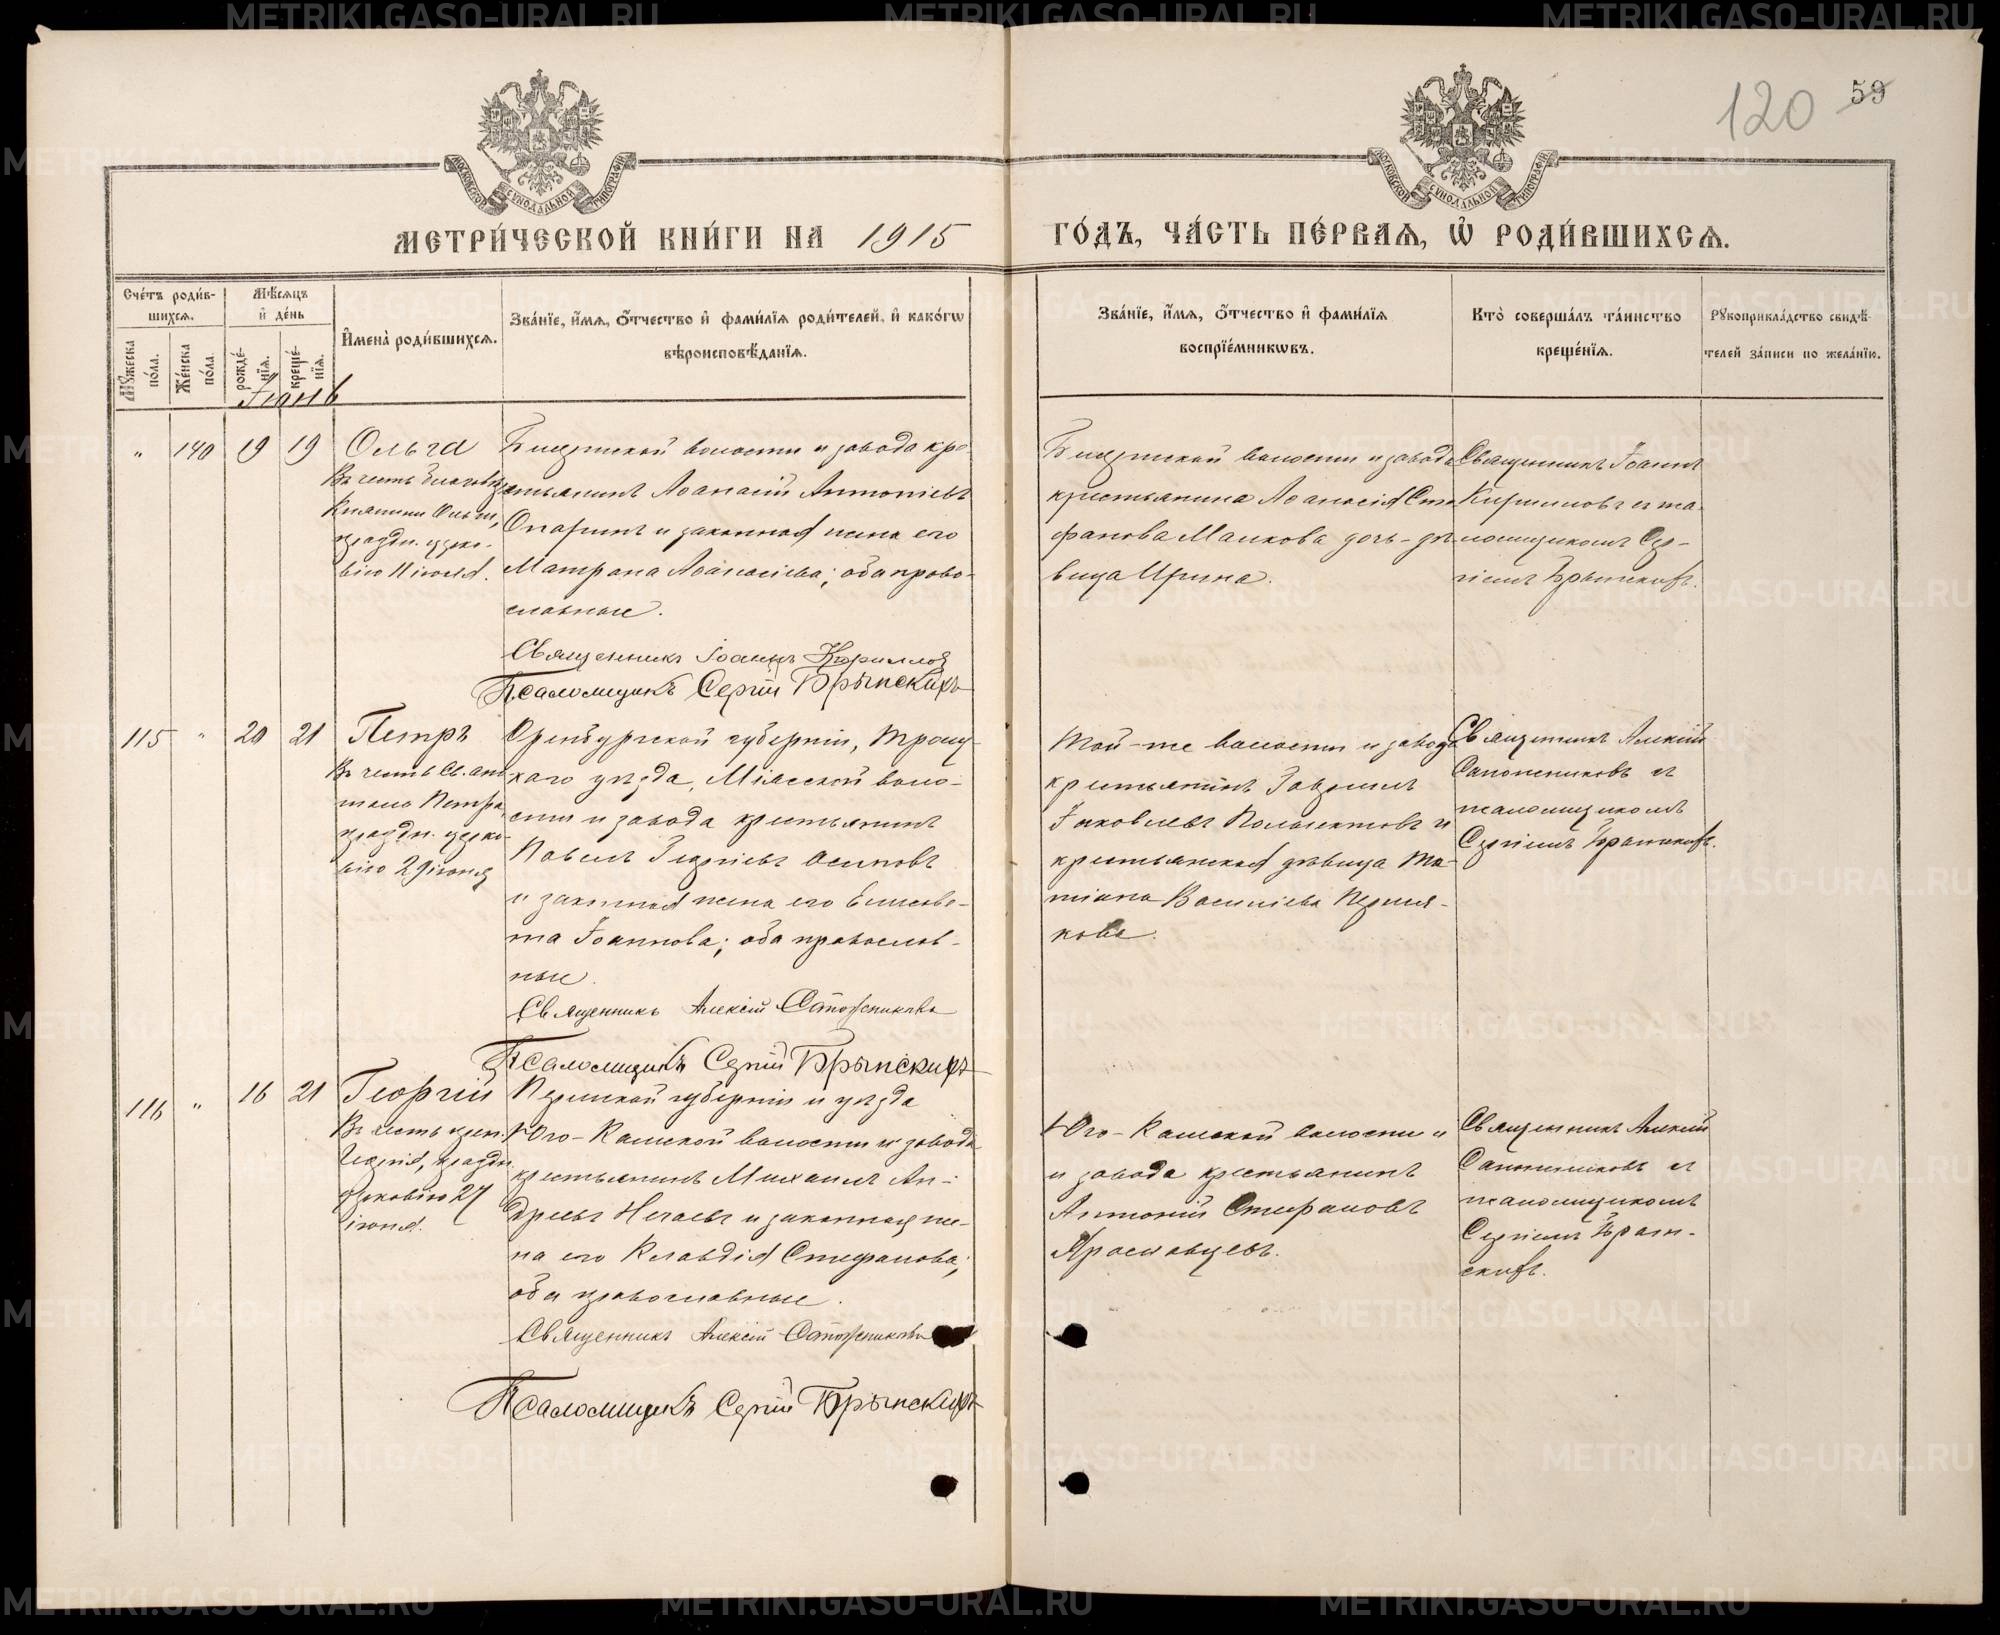 120 59
МОСКОВСКОЙ СѴНОДАЛЬНОЙ ТИПОГРАФІИ
МОСКОВСКОЙ СѴНОДАЛЬНОЙ ТИПОГРАФІИ
МЕТРИ́ЧЕСКОЙ КНИ́ГИ НА 1915
ГО́ДЪ, ЧА́СТЬ ПЕ́РВАѦ, Ѽ РОДИ́ВШИХСѦ.
Сче́тъ роди́в-
шихсѧ.
Мꙋжеска по́ла.
Же́нска по́ла.
Мѣ́сѧцъ
и҆ де́нь
рожде́нїѧ.
креще́нїѧ.
И҆мена̀ роди́вшихсѧ.
Зва́нїе, и҆́мѧ, ѻ҆́тчество и҆ фами́лїѧ роди́телей, и҆ како́гѡ
вѣроисповѣ́данїѧ.
Зва́нїе, и҆́мѧ, ѻ҆́тчество и҆ фами́лїѧ
воспрїе́мникѡвъ.
Кто̀ соверша́лъ та́инство
креще́нїѧ.
Рꙋкоприкла́дство свидѣ́-
телей за́писи по жела́нїю.
Іюнь
" 140 19 19 Ольга
Въ честь благовѣр
Княгини Ольги,
праздн. церко-
вію 11 іюля.
Бисертской волости и завода кре-
стьянинъ Аѳанасій Антоніевъ
Опаринъ и законная жена его
Матрона Аѳанасіева; оба право-
славные.
Священникъ Іоаннъ Кирилловъ
Псаломщикъ Сергій Брынскихъ
Бисертской волости и завода
крестьянина Аѳанасія Сте-
фанова Малкова дочь-дѣ-
вица Ирина.
Священникъ Іоаннъ
Кирилловъ съ пса-
ломщикомъ Сер-
гіемъ Брынскихъ.
115 " 20 21 Петръ
Въ честь Св. апо
стола Петра,
праздн. церко-
вію 29 іюня
Оренбургской губерніи, Троиц-
каго уѣзда, Міасской воло-
сти и завода крестьянинъ
Павелъ Георгіевъ Осиповъ
и законная жена его Елисаве-
та Іоаннова; оба православ-
ные.
Священникъ Алексій Сапожниковъ
Псаломщикъ Сергій Брынскихъ
Той-же волости и завода
крестьянинъ Гавріилъ
Іаковлевъ Полыектовъ и
крестьянская дѣвица Та-
тіана Василіева Пермя-
кова.
Священникъ Алексій
Сапожниковъ съ
псаломщикомъ
Сергіемъ Брынскихъ.
116 " 16 21 Георгій
Въ честь прп.
Георгія, праздн.
церковію 27
іюня.
Пермской губерніи и уѣзда
Юго-Камской волости и завода
крестьянинъ Михаилъ Ан-
дреевъ Нечаевъ и законная же-
на его Клавдія Стефанова;
оба православные.
Священникъ Алексій Сапожниковъ
Псаломщикъ Сергій Брынскихъ
Юго-Камской волости и
и завода крестьянинъ
Антоній Стефановъ
Ярославцевъ.
Священникъ Алексій
Сапожниковъ съ
псаломщикомъ
Сергіемъ Брын-
скихъ.
METRIKI.GASO-URAL.RU